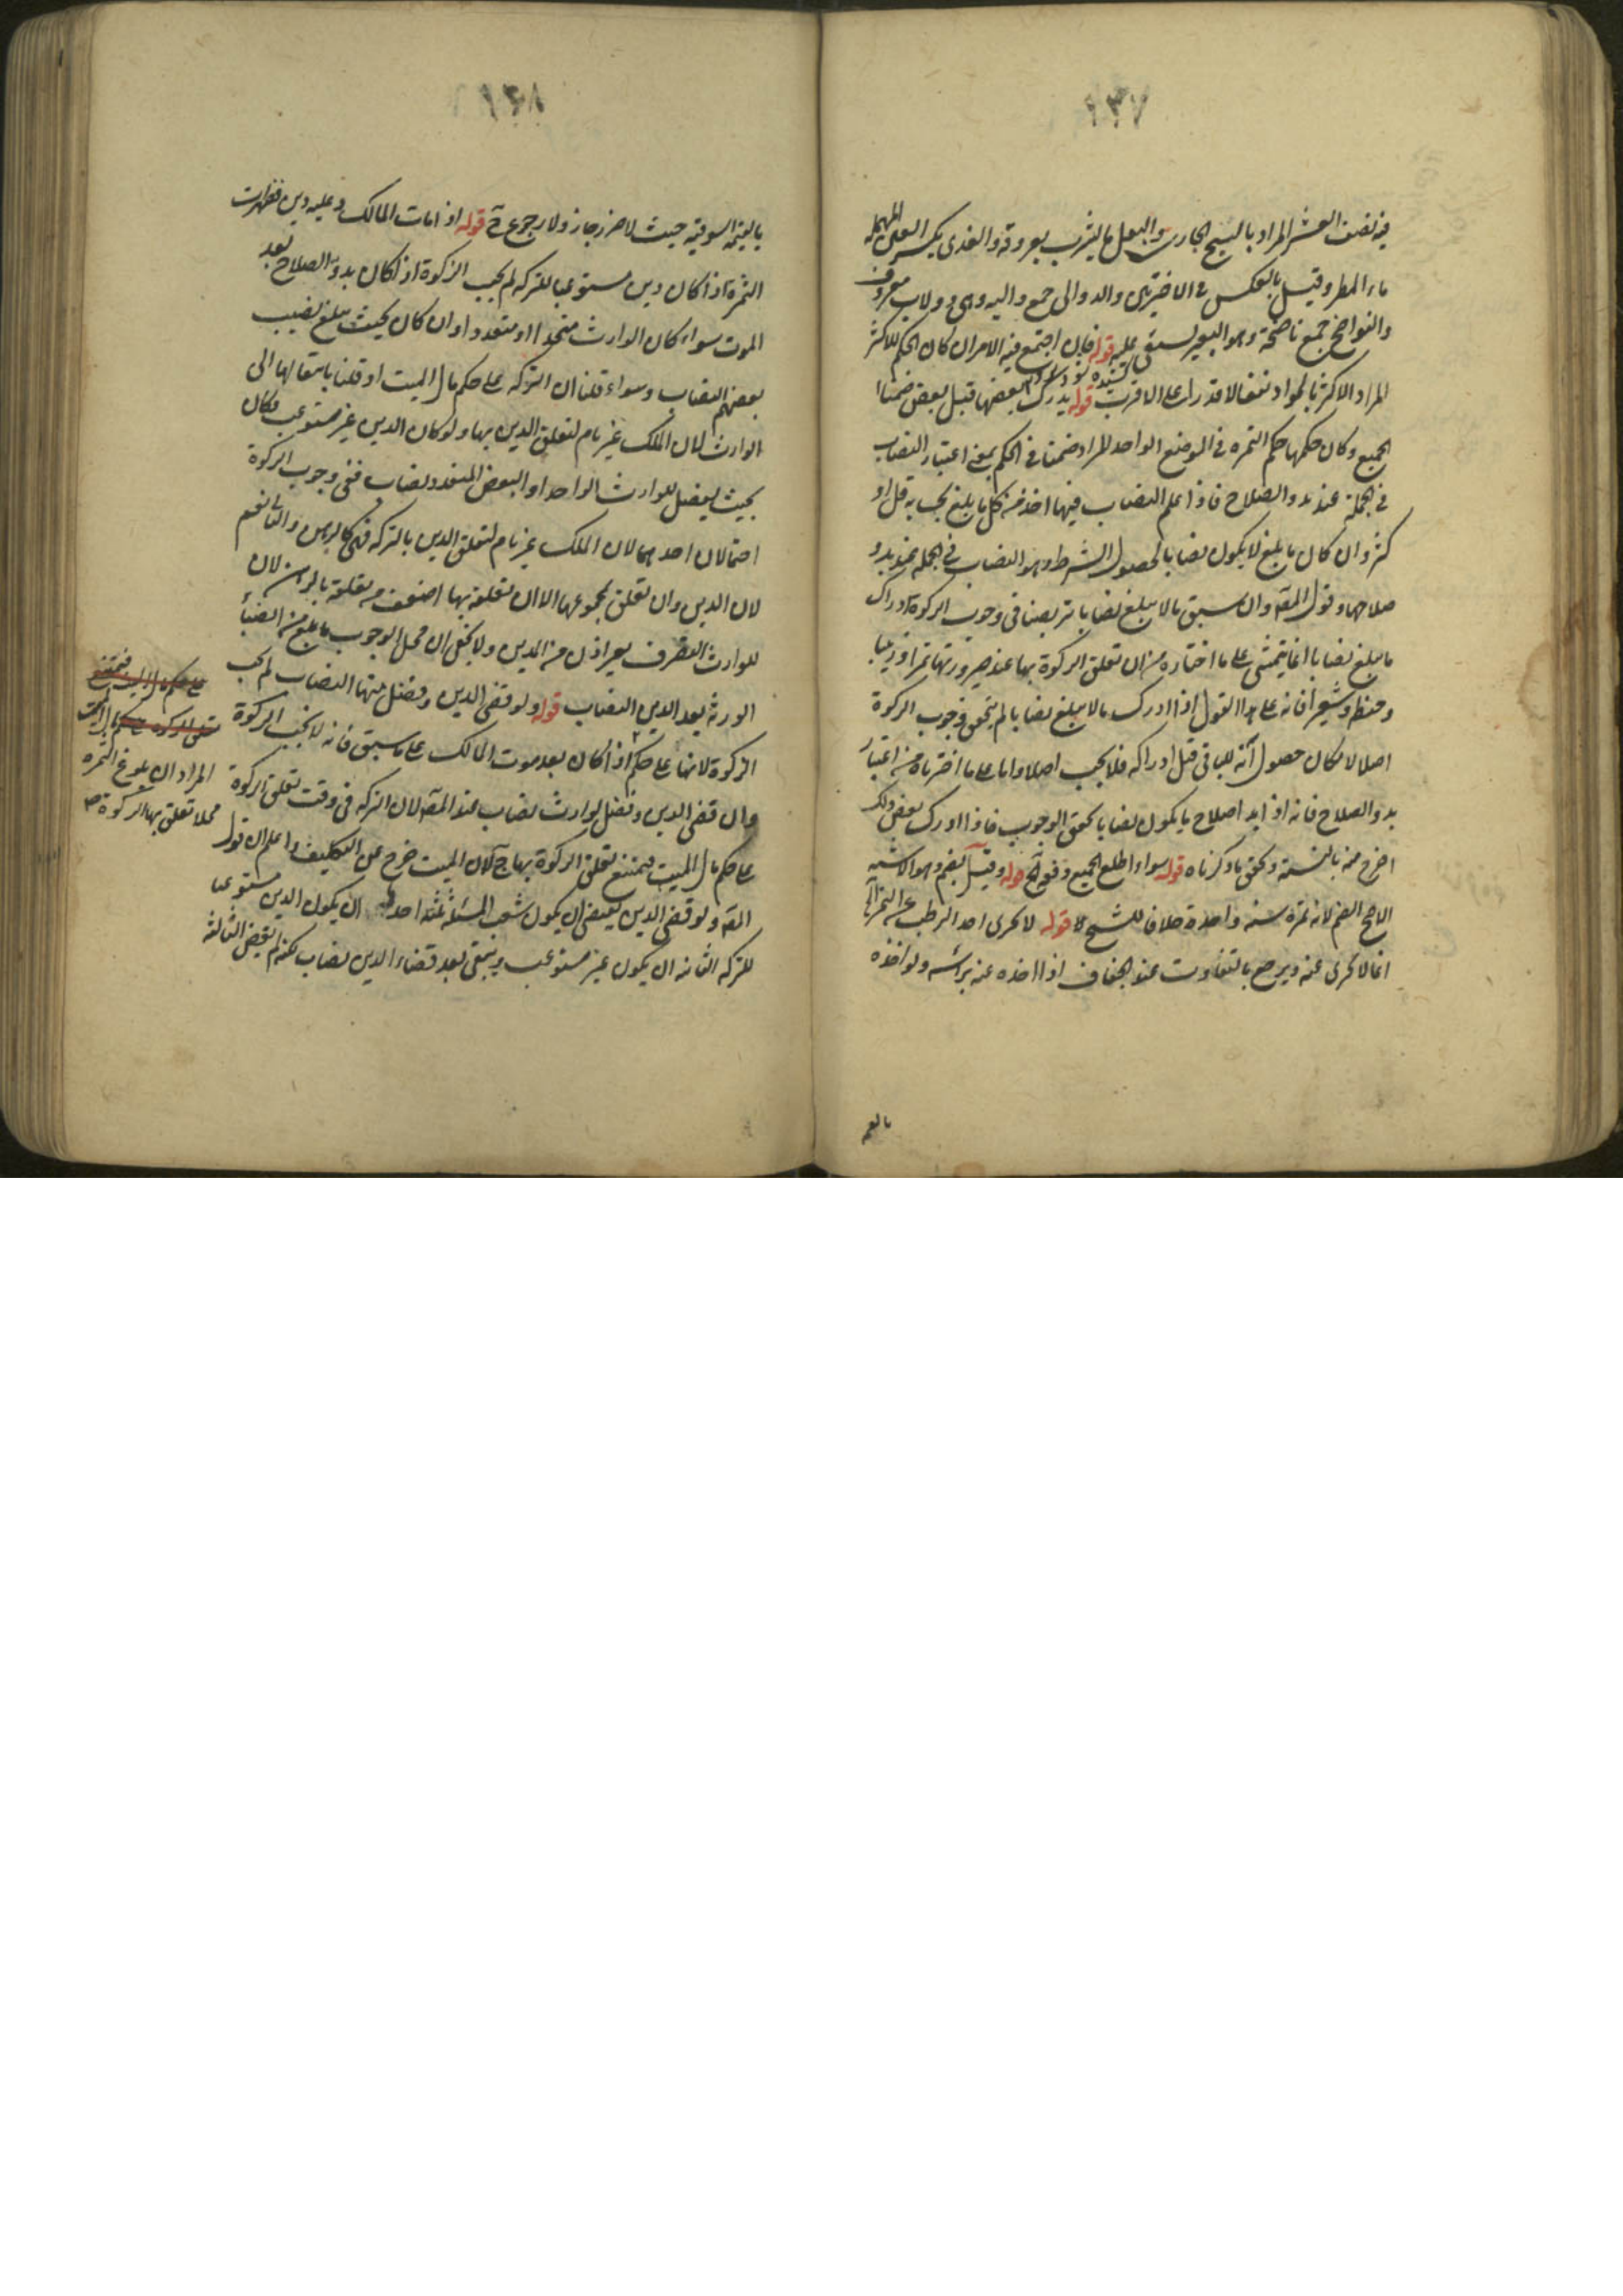 ١٣٧
فيه نصف العشر المراد بالسيح الجاري والبعل ما يشرب بعروقه والعذي بكسر العين المهملة
ماء المطر وقيل بالعكس في الاخيرتين والدوالي جمع دالية وهي دولاب معروف
والنواضح جمع ناضحة وهو البعير يستقى عليه قوله فان اجتمع فيه الامران كان الحكم للاكثر
المراد الاكثر نفعا لا قدرا على الاقرب قوله يدرك بعضها قبل بعض ضمنا
الجميع وكان حكمها حكم الثمره في الموضع الواحد المراد ضمنا في الحكم بمعنى اعتبار النصاب
في الجملة عند بدو الصلاح فاذا علم النصاب فيها اخذ من كل ما يبلغ بحسابه قل او
كثر وان كان ما بلغ لا يكون نصابا لحصول الشرط وهو النصاب في الجمله عند بدو
صلاحها وقول المصه وان سبق ما لا يبلغ نصابا تربصنا في وجوب الزكوة ادراك
ما يبلغ نصابا انما يتمشى على ما اختاره من ان تعلق الزكوة بها عند صيرورتها تمرا او زبيبا
وحنطه وشعيرا فانه على هذا القول اذا ادرك ما لا يبلغ نصابا لم يتحقق وجوب الزكوة
اصلا لامكان حصول آفة للباقي قبل ادراكه فلا يجب اصلا واما على ما اخترناه من اعتبار
بدو الصلاح فانه اذا بدا صلاح ما يكون نصابا تحقق الوجوب فاذا ادرك بعض ذلك
اخرج منه بالنسبة وتحقق ما ذكرناه قوله سواء اطلع الجميع دفعة قوله وقيل يضم وهو الاشبه
الاصح الضم لانه ثمرة سنه واحدة خلافا للشيخ قوله لا يجزى اخذ الرطب عن التمر
انما لا يجزى عنه ويرجع بالتفاوت عند الجفاف اذا اخذه عنه برأسه ولو اخذه
بالقيم
١٣٨
بالقيمة السوقية حيث لا ضرر جاز ولا رجوع ح قوله اذا مات المالك وعليه دين فظهرت
الثمرة اذا كان دين مستوعبا للتركه لم يجب الزكوة اذا كان بدو الصلاح بعد
الموت سواء كان الوارث متحدا او متعددا وان كان بحيث يبلغ نصيب
بعضهم النصاب وسواء قلنا ان التركه على حكم مال الميت او قلنا بانتقالها الى
الوارث لان الملك غير تام لتعلق الدين بها ولو كان الدين غير مستوعب وكان
بحيث يفضل للوارث الواحد او البعض المتعدد نصاب ففي وجوب الزكوة
احتمالان احدهما لا لان الملك غير تام لتعلق الدين بالتركه فهي كالرهن والثاني نعم
لان الدين وان تعلق بمجموعها الا ان تعلقه بها اضعف من تعلقه بالرهن لان
للوارث التصرف بغير اذن من الدين ولا يخفى ان محل الوجوب ما بلغ من انصباء
الورثة بعد الدين النصاب قوله ولو قضى الدين وفضل منها النصاب لم تجب
الزكوة لانها على حكم اذا كان بعد موت المالك على ما سبق فانه لا تجب الزكوة
وان قضى الدين وفضل لوارث نصاب عند المصه لان التركه في وقت تعلق الزكوة
على حكم مال الميت فيمتنع تعلق الزكوة بها ح لان الميت خرج عن التكليف واعلم ان قول
المصه ولو قضى الدين يقتضى ان يكون شعب المسئلة ثلثة احدها ان يكون الدين مستوعبا
للتركه الثانيه ان يكون غير مستوعب ويبقى بعد قضاء الدين نصاب لكنه لم يقض الثالثه
على حكم مال الميت فيمتنع
تعلق الزكوة على حكم مال الميت
المراد ان بلوغ الثمره
محلا تعلق بها الزكوة